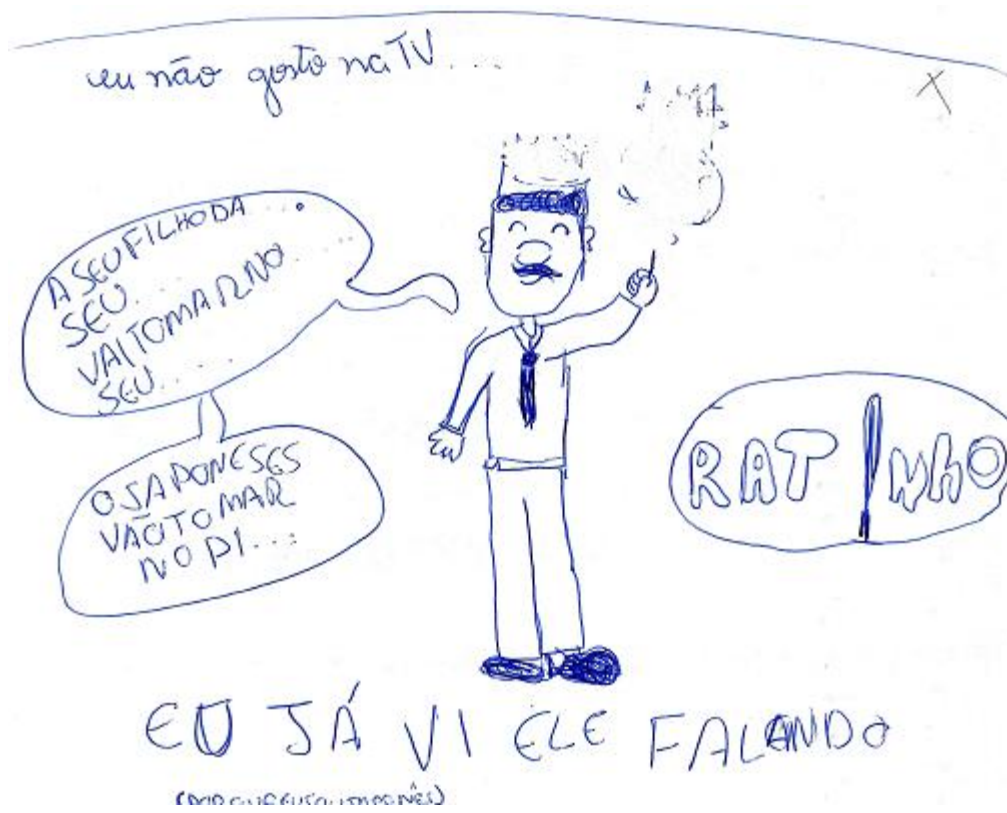 eu não gosto na TV...
A SEU FILHO DA ....
SEU.......
VAI TOMAR NO.....
SEU.....
OS JAPONESES
VÃO TOMAR
NO PI...
RATINHO
EU JÁ VI ELE FALANDO